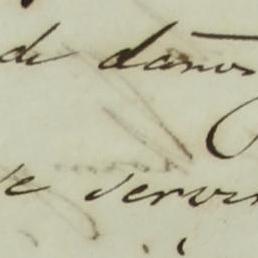 de danos
se servi